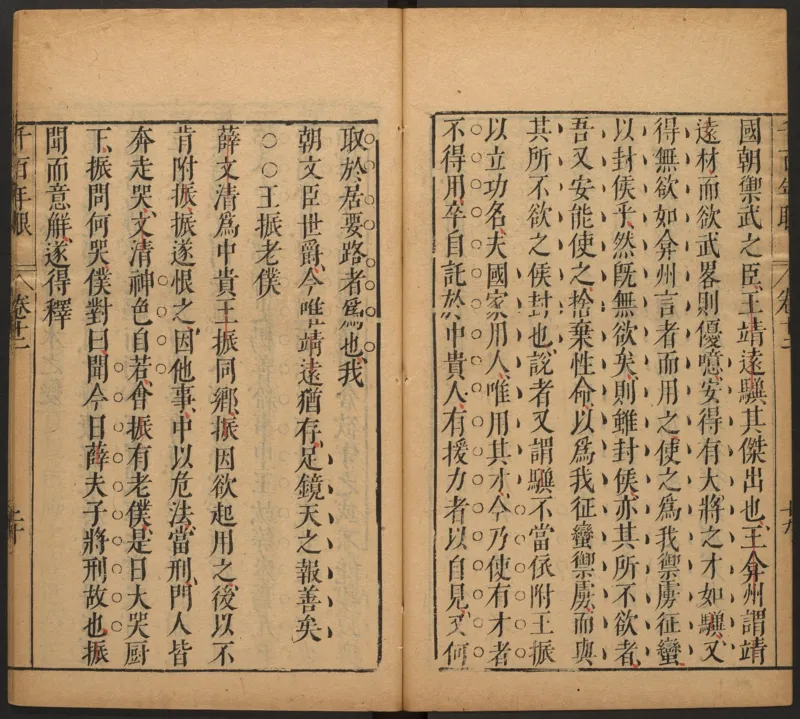 國朝禦武之臣王靖遠驥其傑出也王弇州謂靖
遠材而欲武畧則優噫安得有大將之才如驥又
得無欲如弇州言者而用之使之爲我禦虜征蠻
以封侯乎然既無欲矣則雖封侯亦其所不欲者
吾又安能使之捨棄性命以爲我征蠻禦虜而與
其所不欲之侯封也說者又謂驥不當依附王振
以立功名夫國家用人唯用其才今乃使有才者
不得用卒自託於中貴人有援力者以自見又何
取於居要路者爲也我
朝文臣世爵今唯靖遠猶存足鏡天之報善矣
○○王振老僕
薛文清爲中貴王振同鄉振因欲起用之後以不
肯附振振遂恨之因他事中以危法當刑門人皆
奔走哭文清神色自若會振有老僕是日大哭厨
下振問何哭僕對曰聞今日薛夫子將刑故也振
聞而意解遂得釋
千百年眼
卷十二